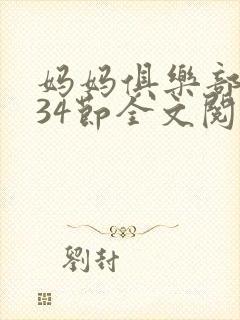 妈妈俱樂部
34節全文閱
劉封